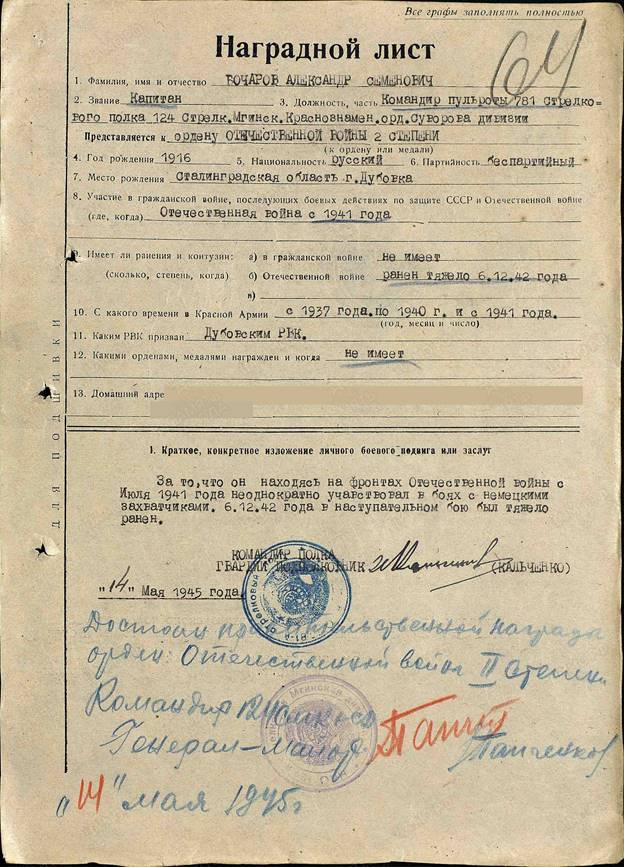 Все графы заполнять полностью
64
Наградной лист
1. Фамилия, имя и отчество БОЧАРОВ АЛЕКСАНДР СЕМЕНОВИЧ
2. Звание Капитан 3. Должность, часть Командир пульроты 781 Стрелко-
вого полка 124 Стрелк.Мгинск.Краснознамен.орд.Суворова дивизии
Представляется к ордену ОТЕЧЕСТВЕННОЙ ВОЙНЫ 2 СТЕПЕНИ
(к ордену или медали)
4. Год рождения 1916 5. Национальность русский 6. Партийность беспартийный
7. Место рождения Сталинградская область г.Дубовка
8. Участие в гражданской войне, последующих боевых действиях по защите СССР и Отечественной войне
(где, когда) Отечественная война с 1941 года
9. Имеет ли ранения и контузии: а) в гражданской войне не имеет
(сколько, степень, когда) б) Отечественной войне ранен тяжело 6.12.42 года
в)
10. С какого времени в Красной Армии с 1937 года.по 1940 г. и с 1941 года.
(год, месяц и число)
11. Каким РВК призван Дубовским РВК.
12. Какими орденами, медалями награжден и когда не имеет
13. Домашний адре
ДЛЯ ПОДШИВКИ
I. Краткое, конкретное изложение личного боевого подвига или заслуг
За то,что он находясь на фронтах Отечественной войны с
Июля 1941 года неоднократно учавствовал в боях с немецкими
захватчиками. 6.12.42 года в наступательном бою был тяжело
ранен.
КОМАНДИР ПОЛКА
ГВАРДИИ ПОДПОЛКОВНИК (КАЛЬЧЕНКО)
"14" Мая 1945 года.
Достоин правительственной награды
орден Отечественной война II степени
Командир 124
Генерал-майор Папченко
"14" мая 1945г